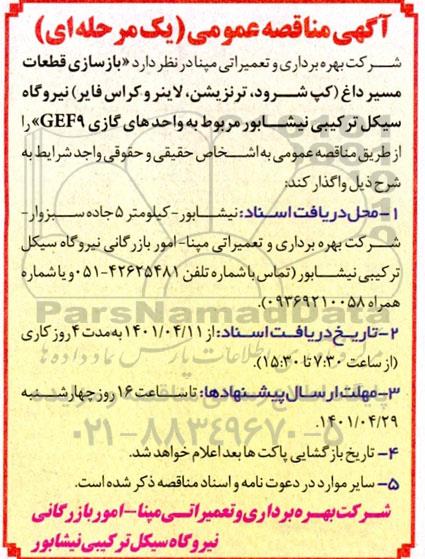 آگهی مناقصه عمومی (یک مرحله ای)
شرکت بهره برداری و تعمیراتی مپنا در نظر دارد «بازسازی قطعات
مسیر داغ (کپ شرود، ترنزیشن، لاینر و کراس فایر) نیروگاه
سیکل ترکیبی نیشابور مربوط به واحدهای گازی GEF9» را
از طریق مناقصه عمومی به اشخاص حقیقی و حقوقی واجد شرایط به
شرح ذیل واگذار کند:
۱- محل دریافت اسناد: نیشابور- کیلومتر ۵ جاده سبزوار-
شرکت بهره برداری و تعمیراتی مپنا- امور بازرگانی نیروگاه سیکل
ترکیبی نیشابور (تماس با شماره تلفن ۴۲۶۲۵۴۸۱-۰۵۱ و یا شماره
همراه ۰۹۳۶۹۲۱۰۰۵۸).
۲- تاریخ دریافت اسناد: از ۱۴۰۱/۰۴/۱۱ به مدت ۴ روز کاری
(از ساعت ۷:۳۰ تا ۱۵:۳۰).
۳- مهلت ارسال پیشنهادها: تا ساعت ۱۶ روز چهارشنبه
۱۴۰۱/۰۴/۲۹.
۴- تاریخ بازگشایی پاکت ها بعد اعلام خواهد شد.
۵- سایر موارد در دعوت نامه و اسناد مناقصه ذکر شده است.
شرکت بهره برداری و تعمیراتی مپنا- امور بازرگانی
نیروگاه سیکل ترکیبی نیشابور
ParsNamadData
۰۲۱-۸۸۳۴۹۶۷۰-۵